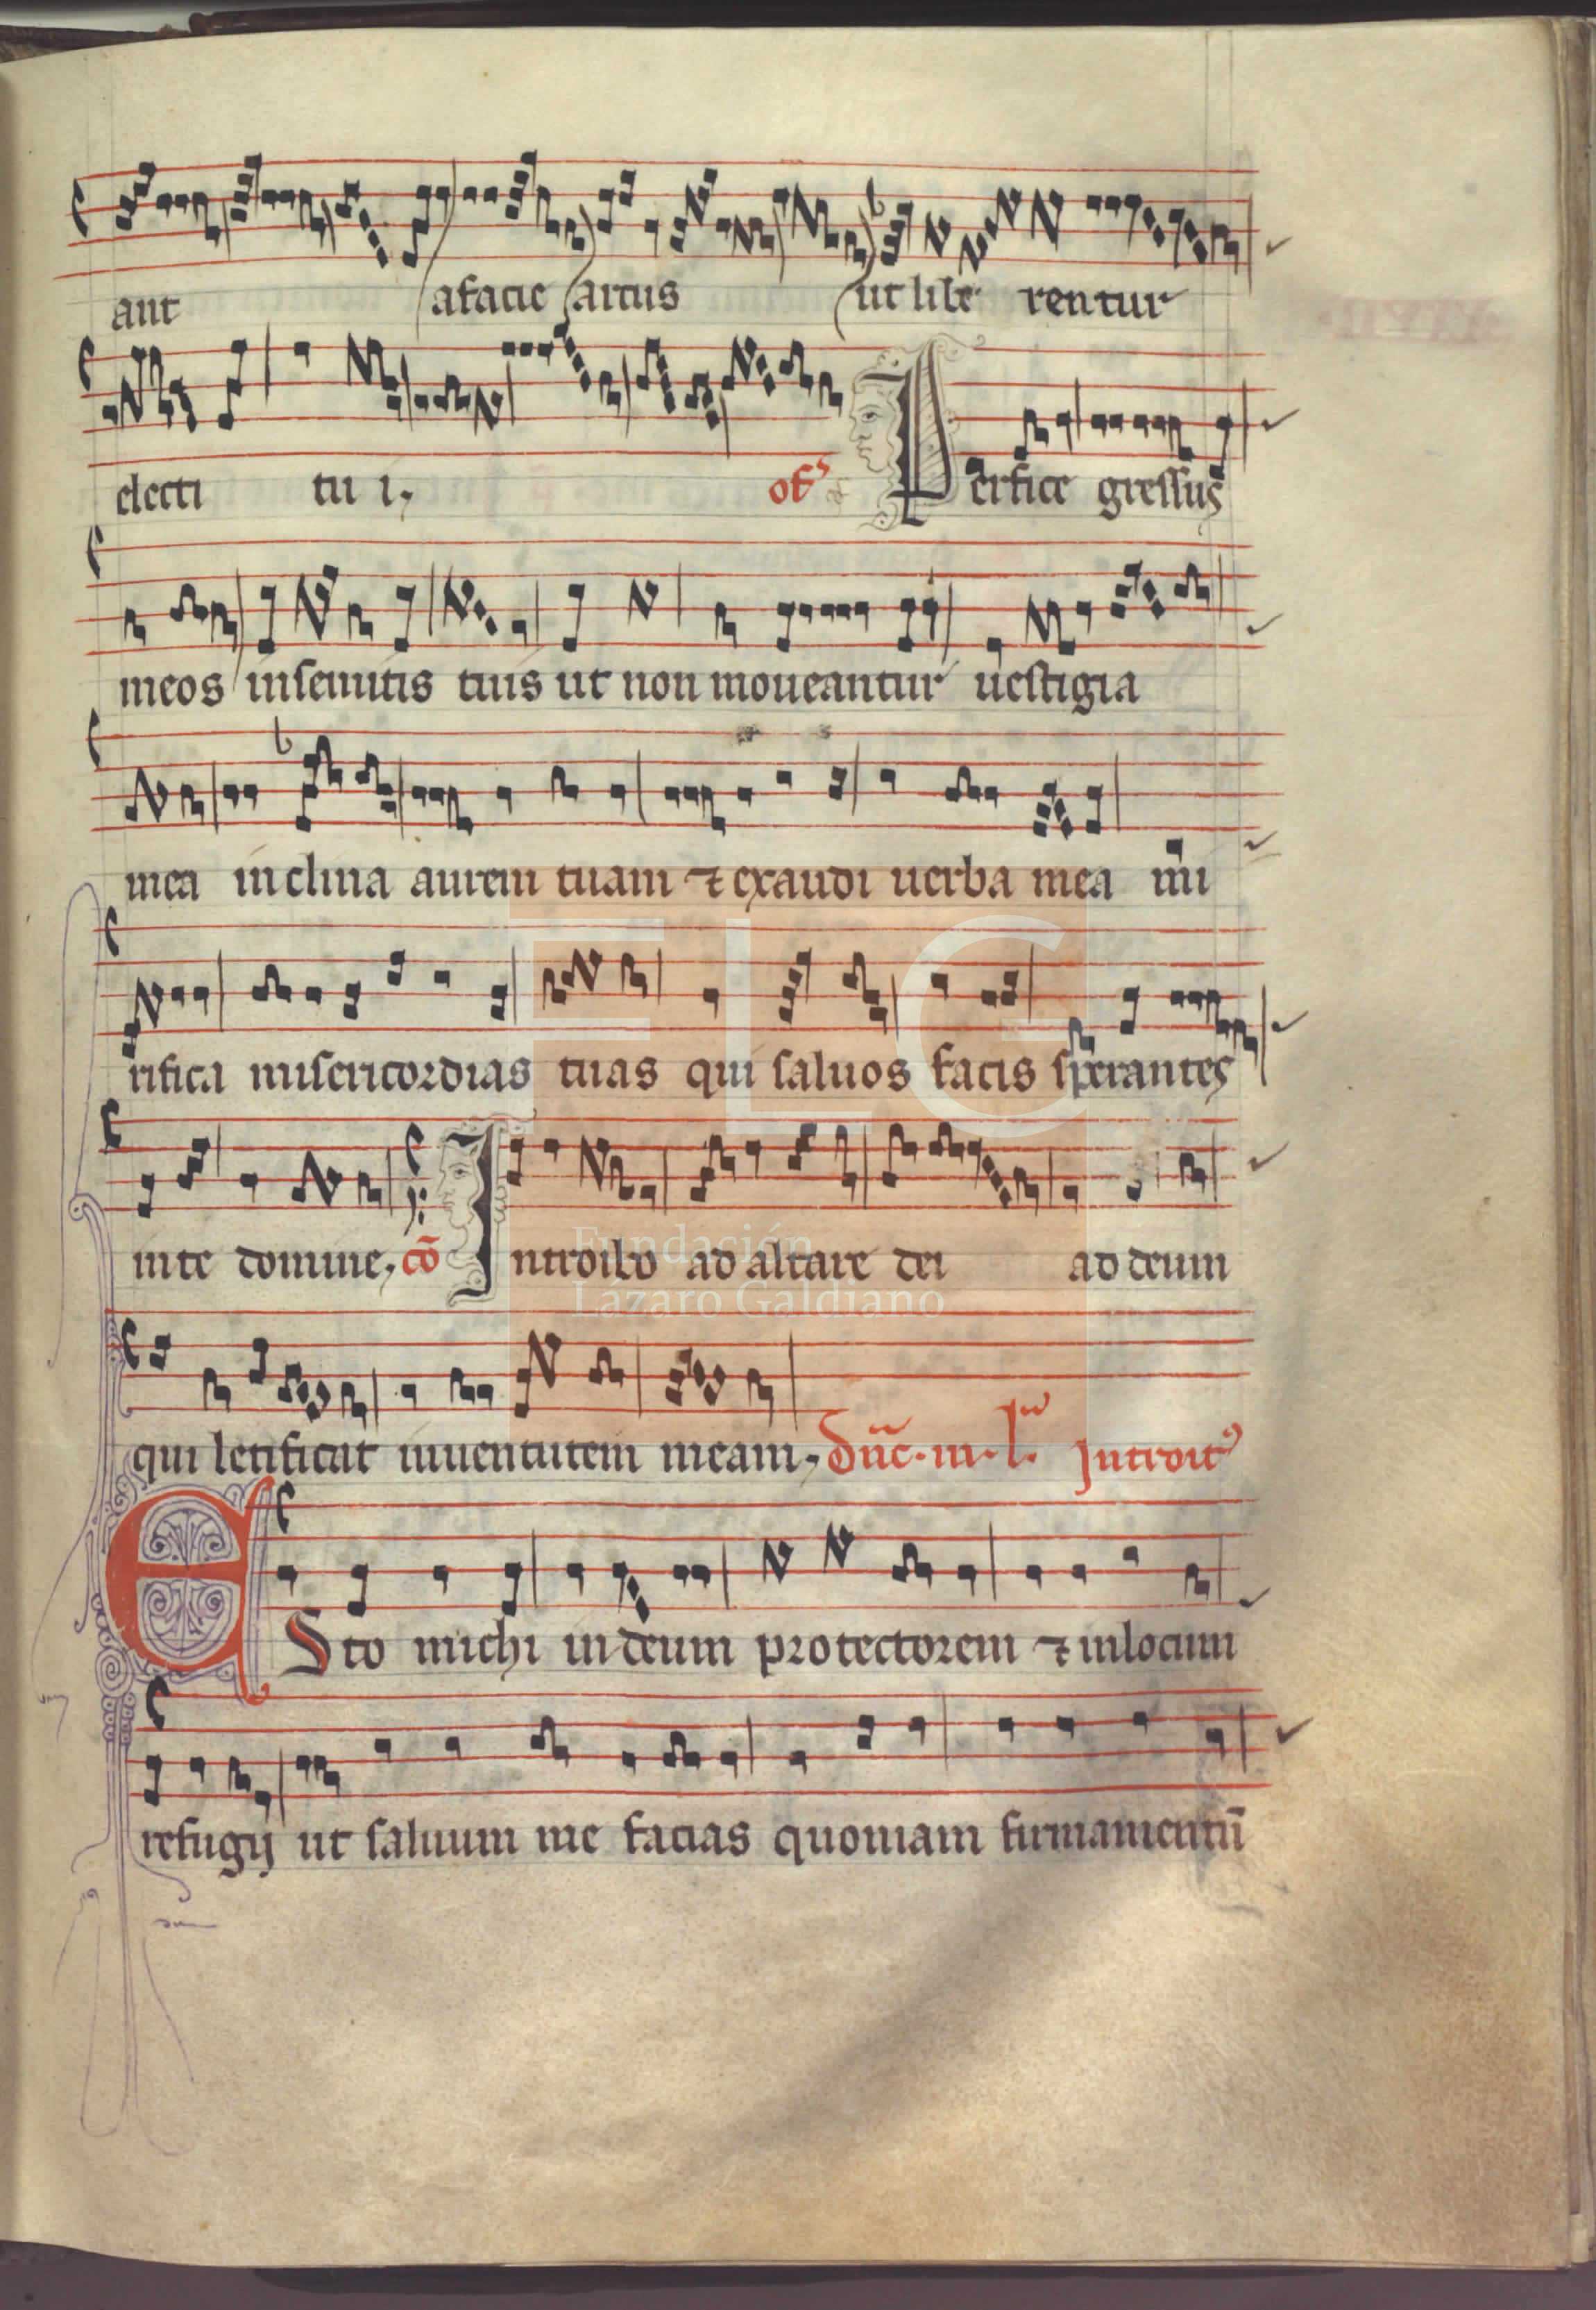 ant a facie arcus ut libe rentur
electi tu i. of Perfice gressus
meos in semitis tuis ut non moueantur uestigia
mea in clina aurem tuam ⁊ exaudi uerba mea mi
rifica misericordias tuas qui saluos facis sperantes
in te domine. cō Introibo ad altare dei ad deum
qui letificat iuuentutem meam. Dn̄c. in. l. Introit⁹
ESto michi in deum protectorem ⁊ in locum
refugij ut saluum me facias quoniam firmamentū
FLG
Fundación
Lázaro Galdiano